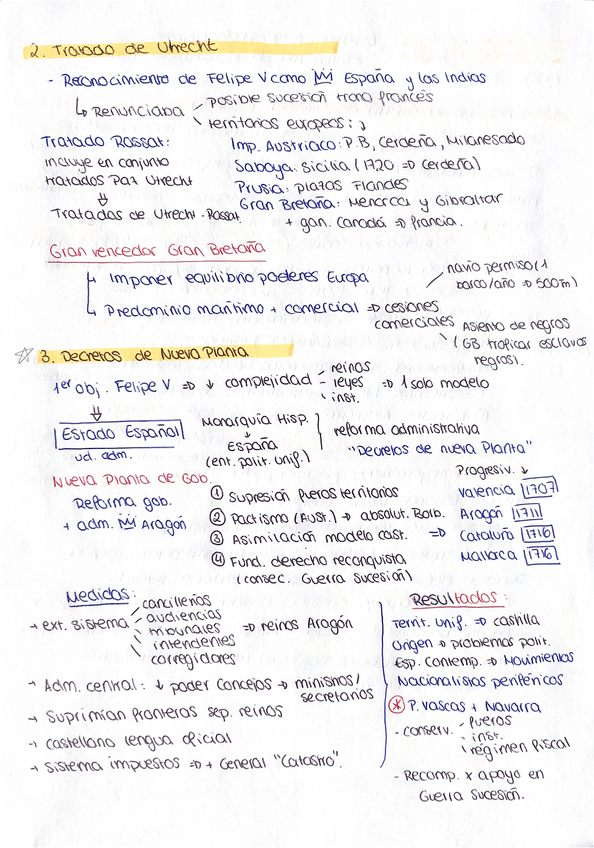 2. Tratado de Utrecht
- Reconocimiento de Felipe V como España y las Indias
↳ Renunciaba
posible sucesión trono francés
territorios europeos:
Tratado Rassat:
incluye en conjunto
tratados Paz Utrecht
⇓
Tratados de Utrecht-Rassat.
Imp. Austriaco: P.B, Cerdeña, Milanesado
Saboya: Sicilia (1720 ⇒ Cerdeña)
Prusia: plazas Flandes
Gran Bretaña: Menorca y Gibraltar
+ gan. Canadá ⇒ Francia.
Gran vencedor Gran Bretaña
↳ Imponer equilibrio poderes Europa
↳ Predominio marítimo + comercial ⇒ cesiones
comerciales
navío permiso (1
barco/año ⇒ 500m)
Asiento de negros
(GB traficar esclavos
negros).
☆ 3. Decretos de Nueva Planta
1er obj. Felipe V ⇒ ↓ complejidad
- reinos
- leyes
- inst.
⇒ 1 solo modelo
⇓
Estado Español
ud. adm.
Monarquía Hisp.
↓
España
(ent. polit. unif.)
reforma administrativa
"Decretos de nueva Planta"
Nueva Planta de Gob.
Reforma gob.
+ adm. Aragón
① Supresión fueros territorios
② Pactismo (Aust.) ⇒ absolut. Borb.
③ Asimilación modelo cast.
④ Fund. derecho reconquista
(consec. Guerra Sucesión)
⇒
Progresiv. ↓
Valencia 1707
Aragón 1711
Cataluña 1716
Mallorca 1716
Medidas:
→ ext. sistema
cancillerías
audiencias
tribunales
intendentes
corregidores
⇒ reinos Aragón
→ Adm. central: ↓ poder Concejos → ministros/
secretarios
→ Suprimían fronteras sep. reinos
→ castellano lengua oficial
→ Sistema impuestos ⇒ + General "Catastro".
Resultados:
Territ. Unif. ⇒ castilla
Origen ⇒ problemas polit.
Esp. Contemp. ⇒ Movimientos
Nacionalistas periféricos
* P. Vascos + Navarra
- conserv.
- fueros
- inst.
- régimen fiscal
- Recomp. x apoyo en
Guerra Sucesión.